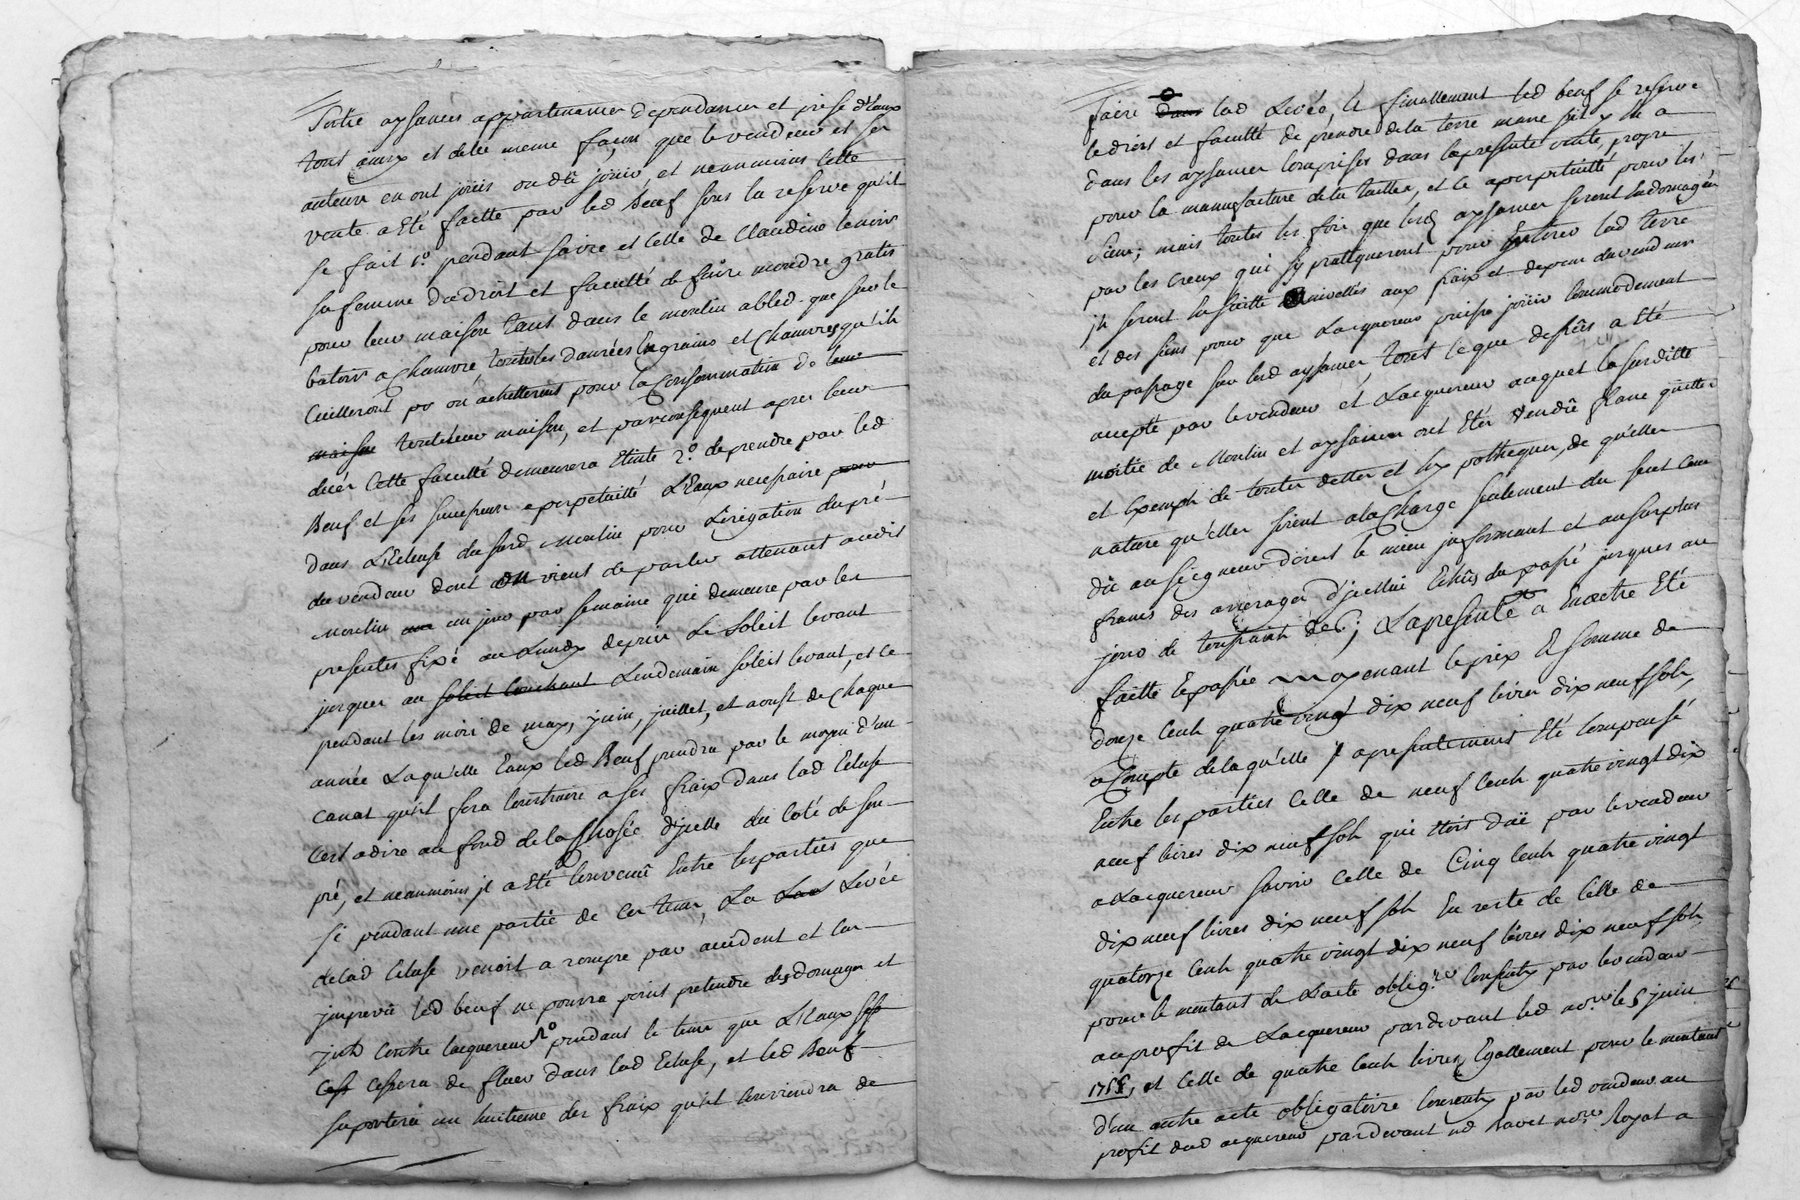 Sortie aysances appartenances dependances et prise d'Eaux
tout ainsy et delle meme façon que le vendeur et ses
auteurs en ont jouis ou dû jouir, et neanmoins cette
vente a Eté faitte par led Beuf sous la reserve qu'il
se fait 1° pendant sa vie et celle de Claudine
sa femme du droit et faculté de faire moudre gratis
pour leur maison tant dans le moulin abled que sur le
batoir a Chanvre touttes les danrées En grains et Chanvres qu'ils
Cuilleront ou achetteront pour la Consommation de leur
maison leur maison, et par consequent apres leur
deces cette faculté demeurera Eteinte 2° de prendre par led
Beuf et ses successeurs a perpetuitté L'Eaux necessaire pour
dans L'Ecluse du surd Moulin pour L'irigation du pré
du vendeur dont on vient de parler attenant audit
Moulin un jour par semaine qui demeure par les
presentes fixé au Lundy depuis Le Soleil levant
jusques au soleil couchant Lendemain soleil levant, et ce
pendant les mois de may, juin, juillet, et aoust de chaque
année Laquelle Eaux led Beuf prendra par le moyen d'un
canat qu'il fera construire a ses fraix dans lad Ecluse
C'est adire au fond de la d'jcelle du Coté de son
pré, et neanmoins jl a Eté convenû Entre les parties que
si pendant une partie de ces tems, La Levée
de lad Ecluse venoit a rompre par accident et cas
jmprevû led beuf ne pourra point pretendre des domages et
jnts contre lacquereur pendant le tems que L'Eaux
cessera de fluer dans lad Ecluse, et led Beuf
suportera un huitieme des fraix qu'il conviendra de
faire dans lad Levée Et finallement led beuf se reserve
le droit et faculté de prendre de la terre sil y En a
dans les aysances comprises dans la presente vente, propre
pour la manufacture de la taillée, et ce a perpetuitté pour les
siens; mais touttes les fois que lesd aysances seront Endomagées
par les creux qui sy pratiqueront pour Entirer lad terre
jls seront Ensuitte nivellés aux fraix et depens du vendeur
et des siens pour que Lacquereur puisse jouir commodement
du passage sur lesd aysances, tout ce que dessus a Eté
accepté par le vendeur et Lacquereur acquet la susditte
moitié de Moulin et aysances ont Etés vendû franc quitte
et Exempts de touttes dettes et hypotheques, de qu'elles
nature qu'elles soient a la Charge seulement du cens
dû au seigneur direct le mieu jnformant et au surplus
francs des arrerages d'jcelui Echûs du passé jusques au
jour de ; La presente a Enoctre Eté
faitte Epassée moyenant le prix Et somme de
douze Cents quatre vingt dix neuf livres dix neuf sols,
a Compte de laquelle a presentement Eté compensé
Entre les parties Celle de neuf Cents quatre vingt dix
neuf livres dix neuf sols qui Etoit dûë par le vendeur
a Lacquereur savoir celle de Cinq Cents quatre vingt
dix neuf livres dix neuf sols En reste de Celle de
quatorze Cents quatre vingt dix neuf livres dix neuf sols
pour le montant de L'acte oblig.re consenty par le vendeur
au profit de Lacquereur pardevant led no.re le 6 juin
, et Celle de quatre Cents livres Egallement pour le montant
d'un autre acte obligatoire consenty par led vendeur au
profit dud acquereur pardevant Me Ravet no.re Royal a